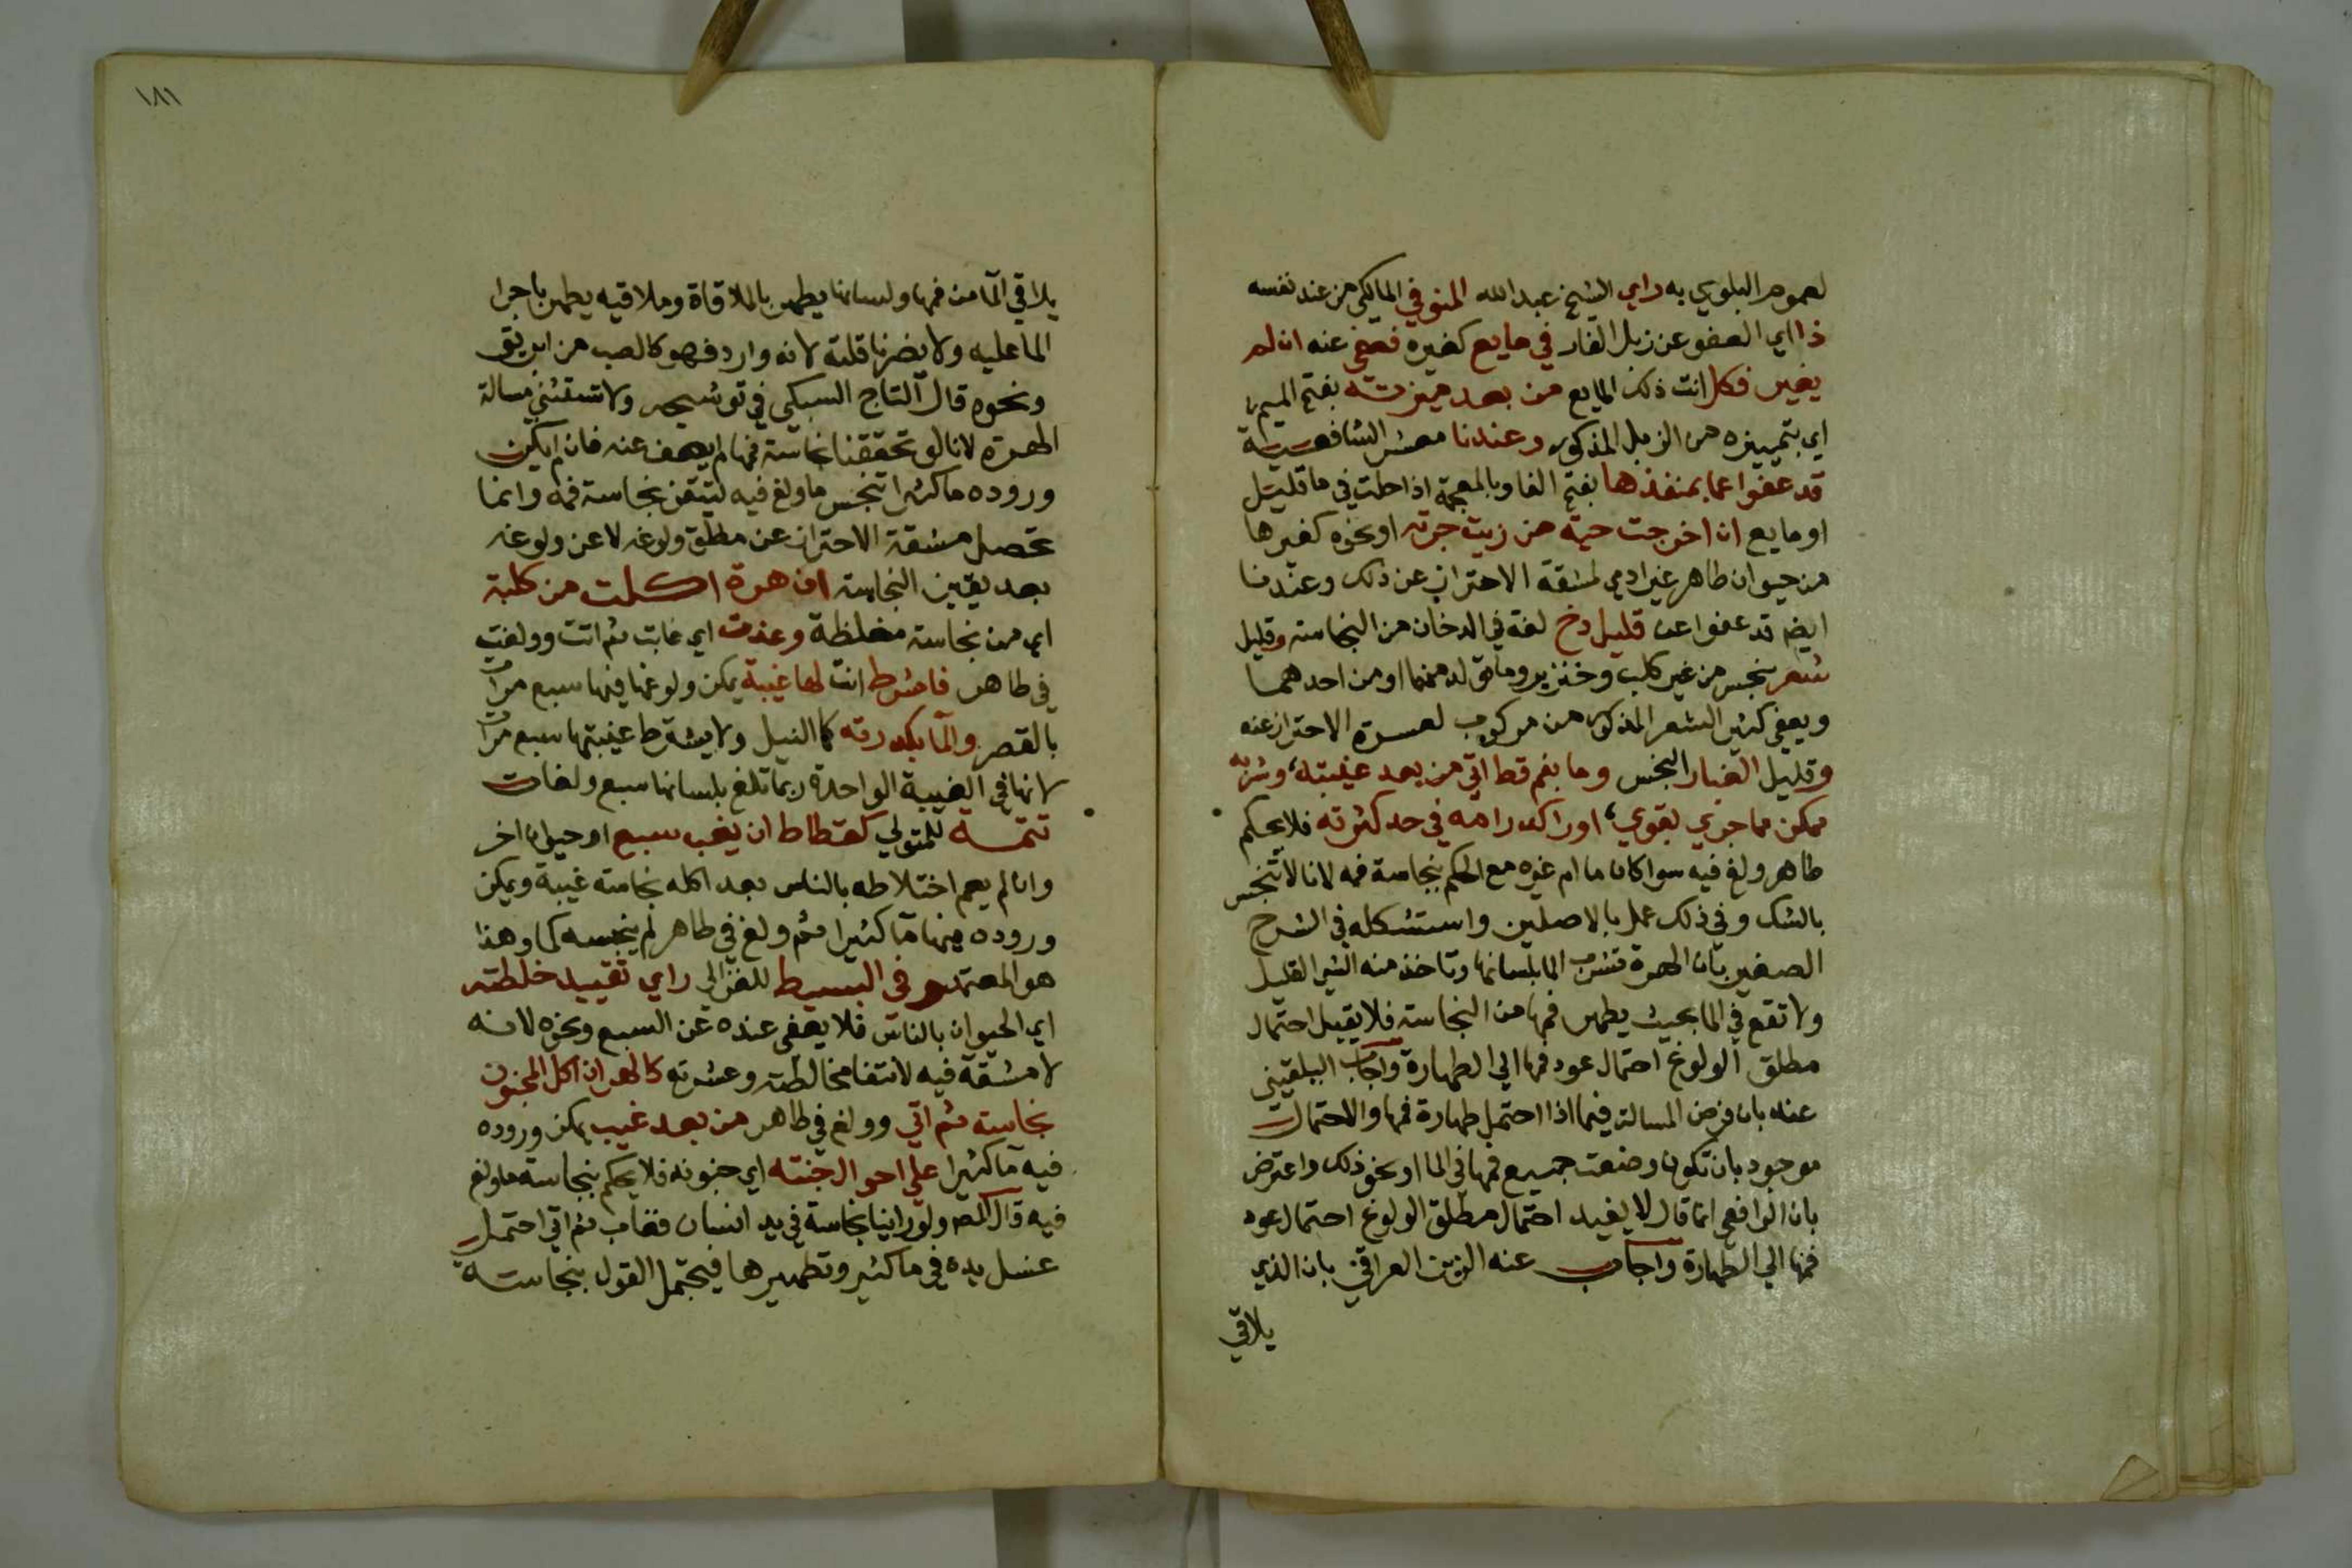 لعموم البلوي به راي الشيخ عبد الله المنوفي المالكي من عند نفسه
ذا اي العفو عن زبل الفار في مايع كغيره فعفي عنه ان لم
يغير فكل انت ذلك المايع من بعد ميزته بفتح الميم
اي بتمييزه من الزبل المذكور وعندنا معشر الشافعية
قد عفوا عما بمنفذها بفتح الفا وبالمعجمة اذا حلت في ما قليل
او مايع ان اخرجت حية من زيت جرته او نحوه كغيرها
من حيوان طاهر غير ادمي لمشقة الاحتراز عن ذلك وعندنا
ايضم قد عفوا عن قليل دخ لغة في الدخان من النجاسة وقليل
شعر نجس من غير كلب وخنزير وما تولد منهما او من احدهما
ويعفي كثير الشعر المذكور من مركوب لعسرة الاحتراز عنه
وقليل الغبار النجس وما بفم قط اتي من بعد غيبته وشربه
ممكن مما جري بقوي او راكد رامه في حد كثرته فلا يحكم
طاهر ولغ فيه سوا كان ما ام غيره مع الحكم بنجاسة فمه لانا لا ننجس
بالشك وفي ذلك عمل بالاصلين واستشكله في الشرح
الصغير بان الهرة تشرب الما بلسانها وتاخذ منه الشي القليل
ولا تقع في الما بحيث يطهر فمها من النجاسة فلا يقبل احتمال
مطلق الولوغ احتمال عود فمها الي الطهارة واجاب البلقيني
عنه بان فرض المسالة فيما اذا احتمل طهارة فمها والاحتمال
موجود بان تكون وضعت جميع فمها في الما او نحو ذلك واعترض
بان الرافعي انما قال لا يفيد احتمال مطلق الولوغ احتمال عود
فمها الي الطهارة واجاب عنه الزين العراقي بان الذي
يلاقي
١٨١
يلاقي الما من فمها ولسانها يطهر بالملاقاة وملاقيه يطهر باجرا
الما عليه ولا يضرنا قلته لانه وارد فهو كالصب من ابريق
ونحوه قال التاج السبكي في توشيحه ولا تستثني مسالة
الهرة لانا لو تحققنا نجاسة فمها لم يعف عنه فان لم يكن
وروده ما كثيرا تنجس ما ولغ فيه ليتقن نجاسة فمه وانما
تحصل مشقة الاحتراز عن مطلق ولوغه لا عن ولوغه
بعد يقين النجاسة ان هرة اكلت من كلبة
اي من نجاسة مغلظة وغدت اي غابت ثم اتت وولغت
في طاهر فاشرط انت لها غيبة يمكن ولوغها فيها سبع مرات
بالقصر والما بكدرته كما النيل ولا يشترط غيبتها سبع مرات
لانها في الغيبة الواحدة ربما تلغ بلسانها سبع ولغات
تتمة للمتولي كقطاط ان يغب سبع او حيوان اخر
وان لم يعم اختلاطه بالناس بعد اكله نجاسة غيبة ويمكن
وروده فيها ما كثيرا ثم ولغ في طاهر لم ينجسه كما وهذا
هو المعتمد وفي البسيط للغزالي راي تقييد خلطته
اي الحيوان بالناس فلا يعفي عنده عن السبع ونحوه لانه
لا مشقة فيه لانتفا مخالطته وعشرته كالهر ان اكل المجنون
نجاسة ثم اتي وولغ في طاهر من بعد غيب يمكن وروده
فيه ما كثيرا علي احوال جنته اي جنونه فلا يحكم بنجاسة ما ولغ
فيه قال المص ولو راينا نجاسة في يد انسان فغاب ثم اتي احتمل
غسل يده في ما كثير وتطهيرها فيحتمل القول بنجاسته